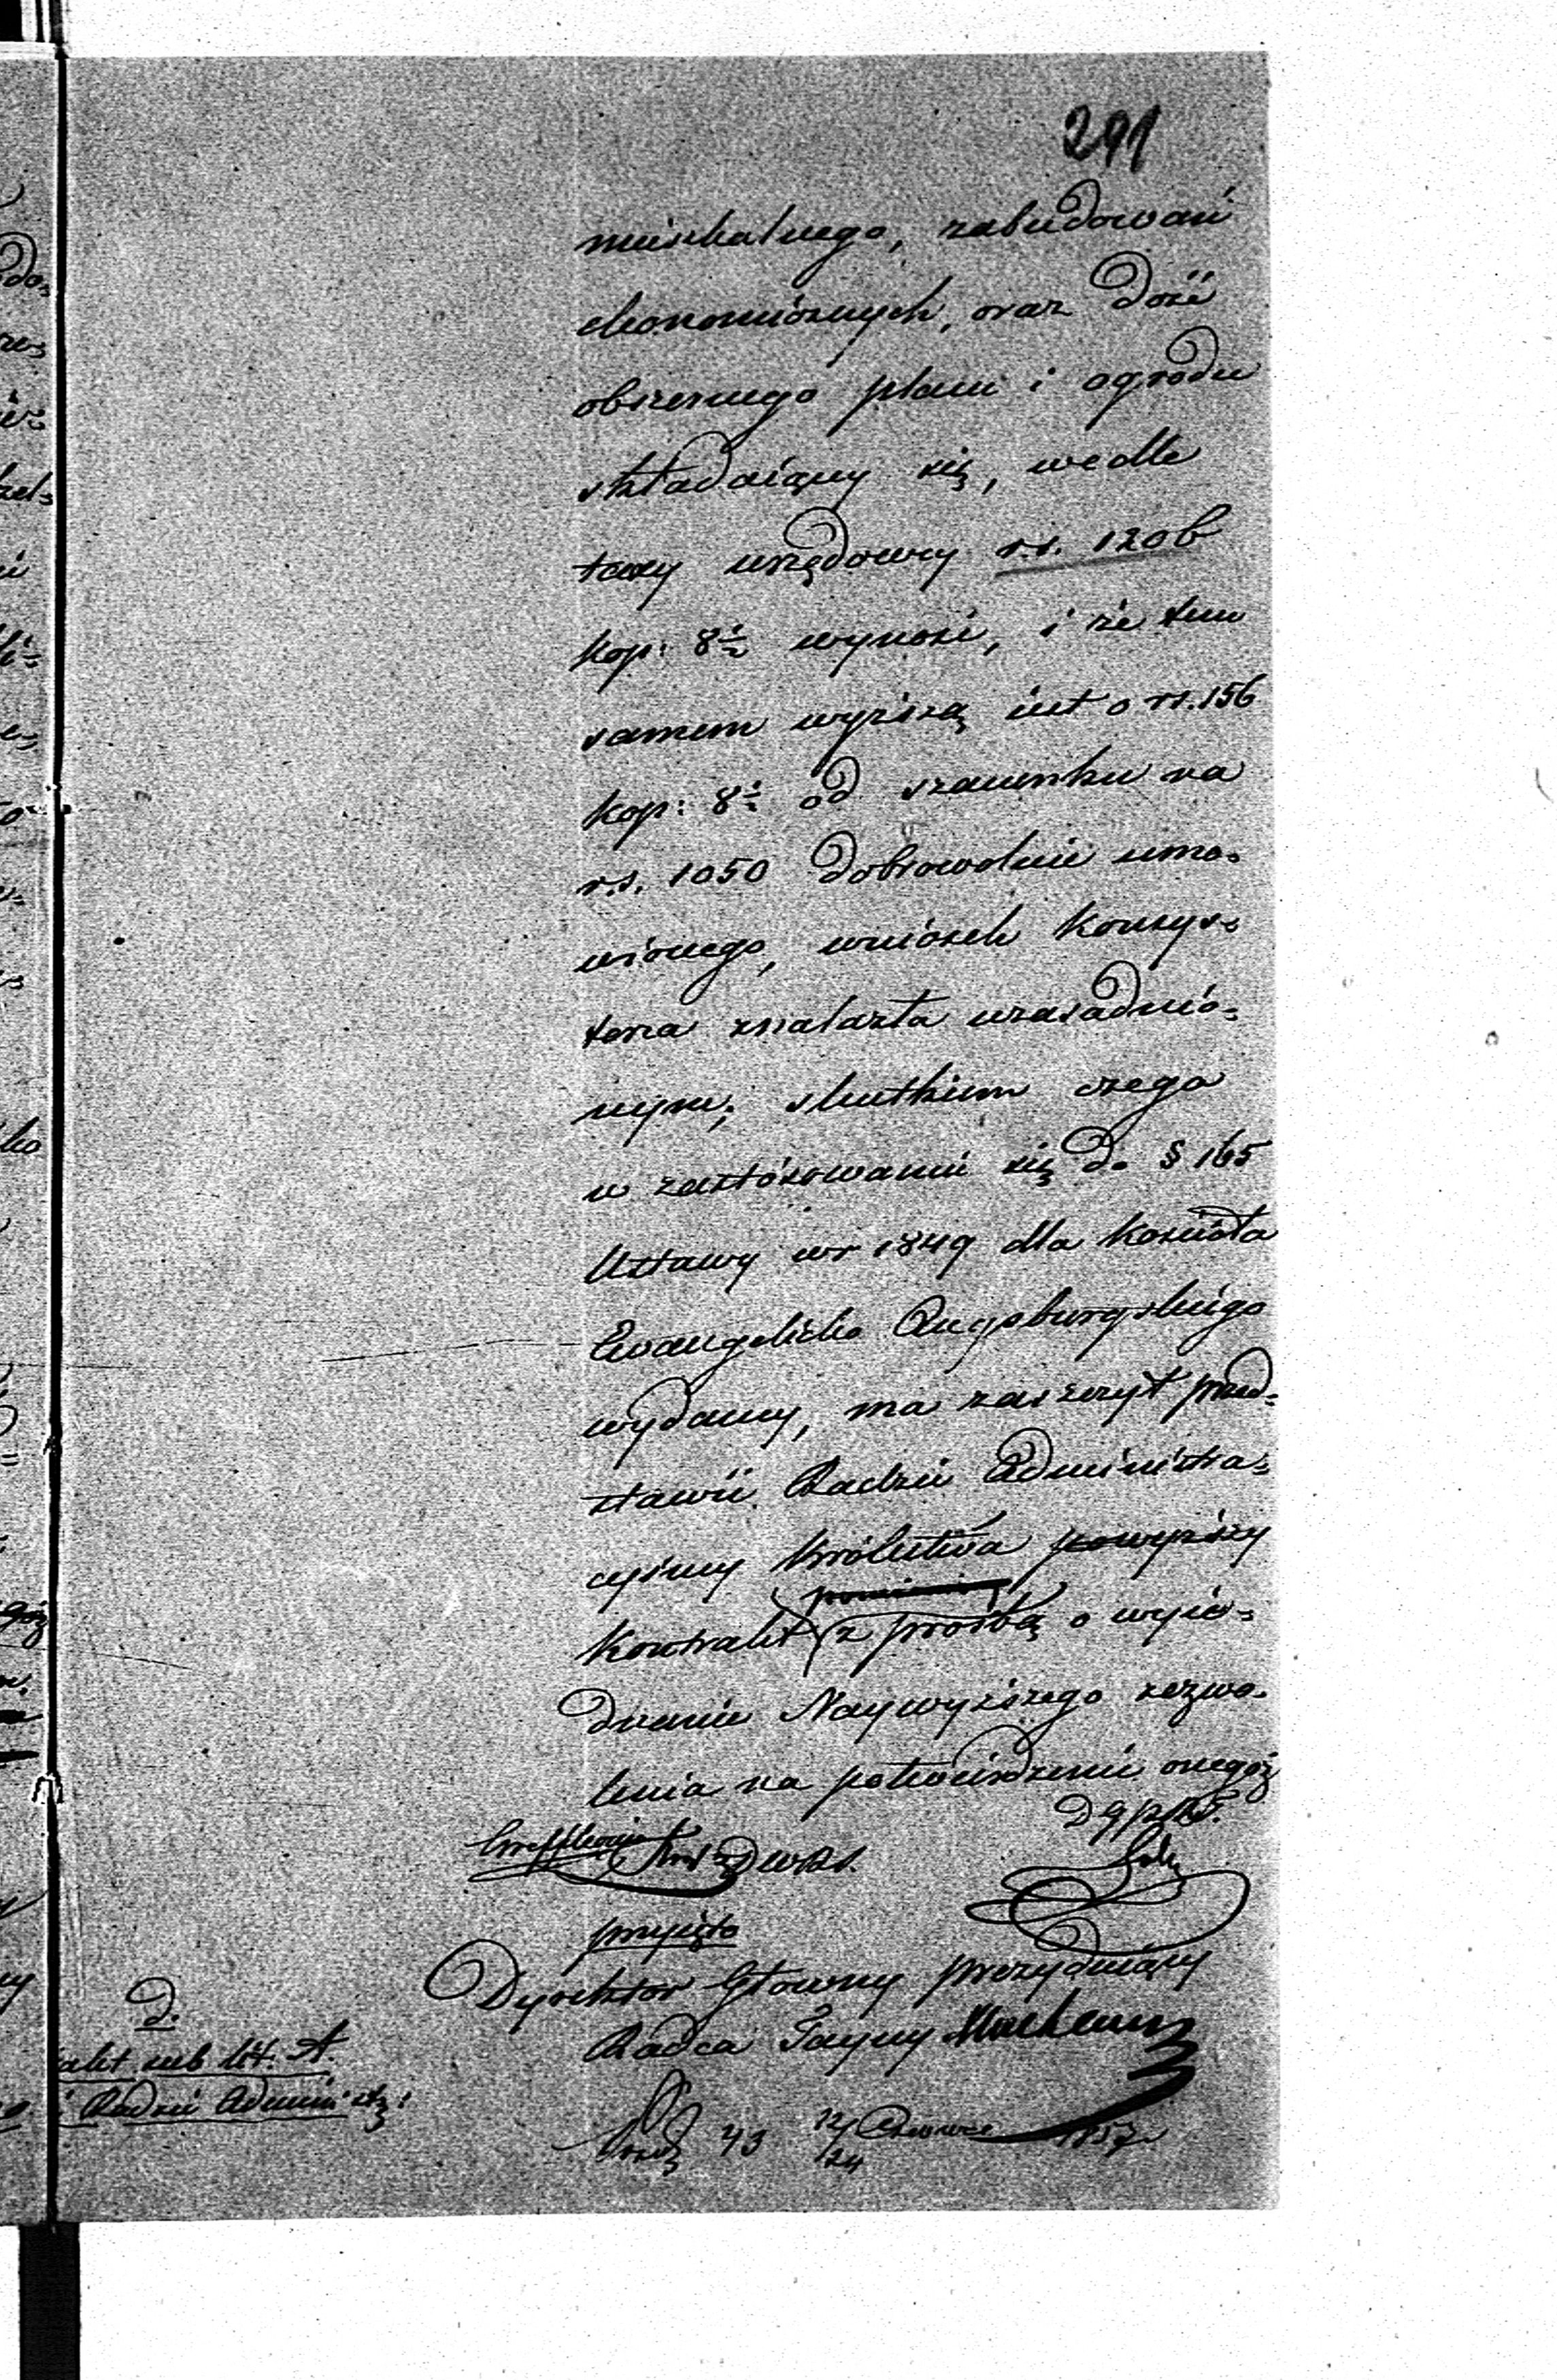 291
mieszkalnego, zabudowań
ekonomicznych, oraz dość
obszernego placu i ogrodu
składaiący się, wedle
taxy urzędowey rs. 1206
kop: 8½ wynosi, i że tem
samem wyższą iest o rs. 156
kop: 8½ od szacunku na
rs. 1050 dobrowolnie umó=
wionego, wniosek Konsys=
torza znalazła uzasadnio=
nym; skutkiem czego
w zastósowaniu się do § 165
Ustawy w r 1849 dla Kościoła
Ewangelicko Augsburgskiego
wydaney, ma zaszczyt przed=
stawić Radzie Administra=
cyiney Królestwa powyższy
Kontrakt z prośbą o wyie=
dnanie Naywyższego zezwo=
lenia na potwierdzenie onegoż
przyięto
Dyrektor Główny prezyduiący
Radca Tayny
D.
akt sub lit. A.
i Radzie Administr:
43 12/24 Czerwca 1857